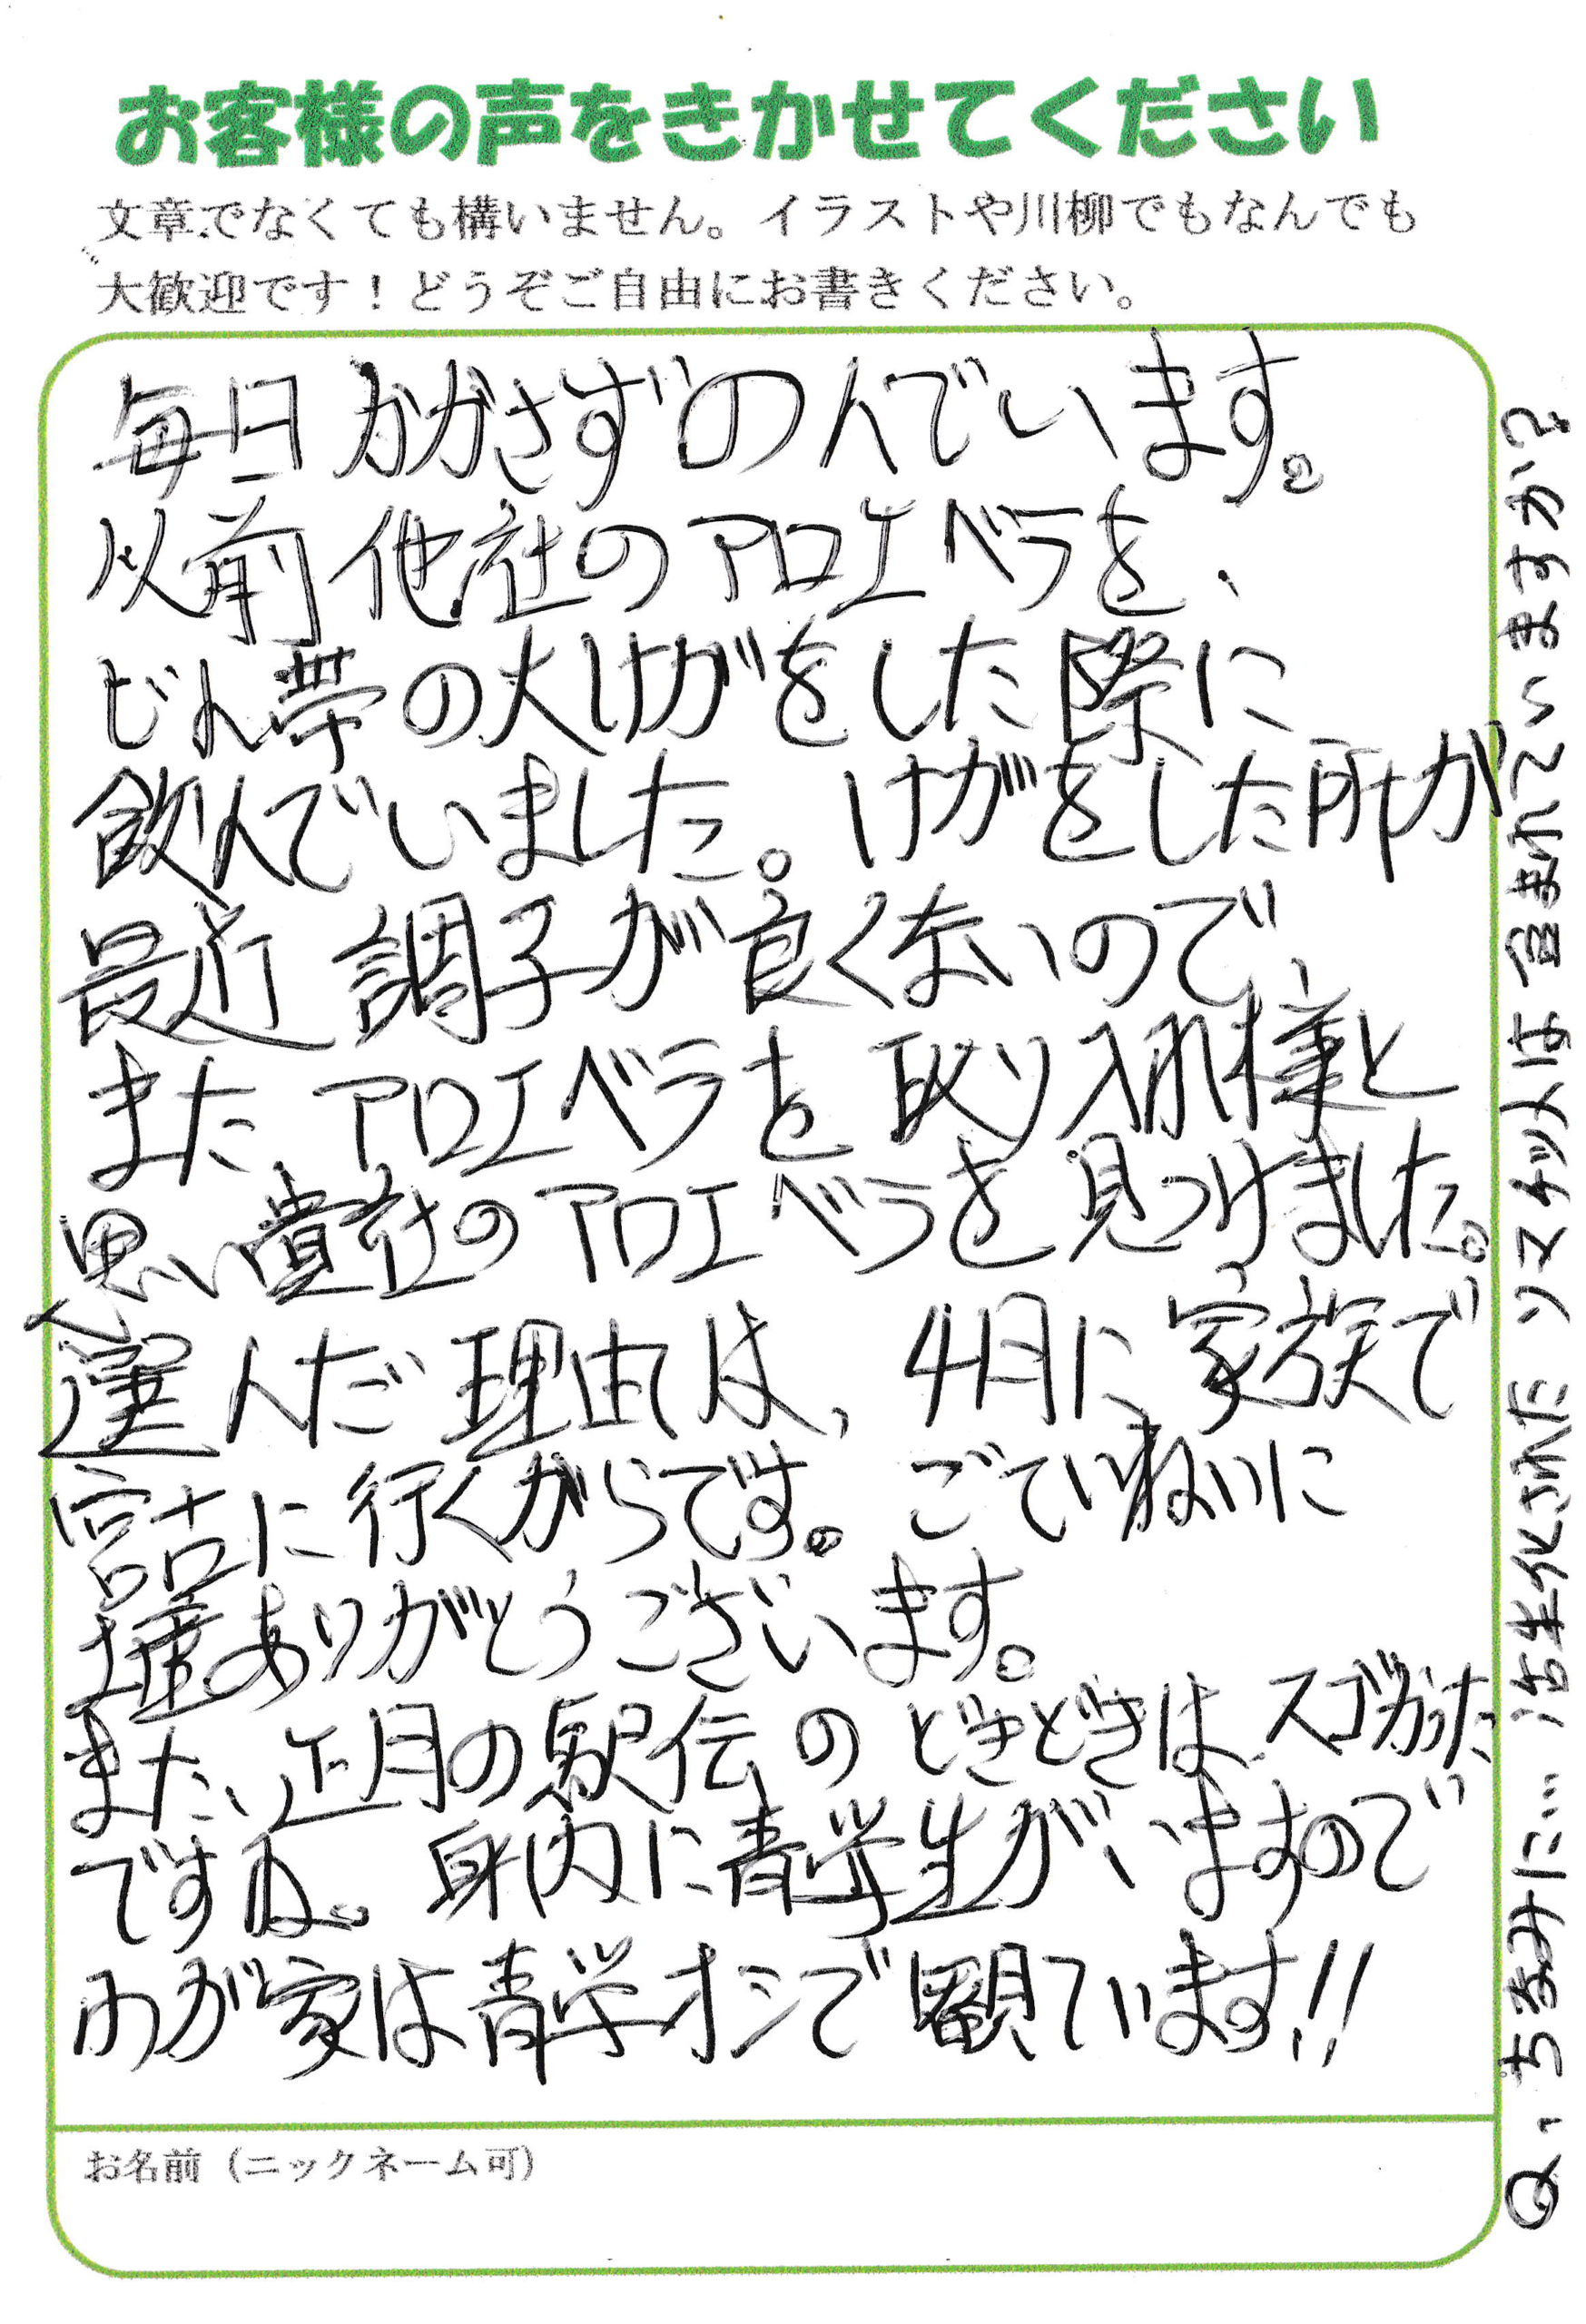 お客様の声をきかせてください
文章でなくても構いません。イラストや川柳でもなんでも
大歓迎です！どうぞご自由にお書きください。
毎日かかさずのんでいます。
以前他社のアロエベラを、
じん帯の大けがをした際に
飲んでいました。けがをした所が
最近調子が良くないので、
また、アロエベラを取り入れ様と
思い貴社のアロエベラを見つけました。
選んだ理由は、4月に家族で
宮古に行くからです。ごていねいに
ありがとうございます。
また、正月の駅伝のどきどきは、スゴかった
ですね。身内に青学生がいますので
わが家は青学オシで観ています!!
お名前（ニックネーム可）
Q、ちなみに… 活生化された リマチッ人は 含まれていますか?